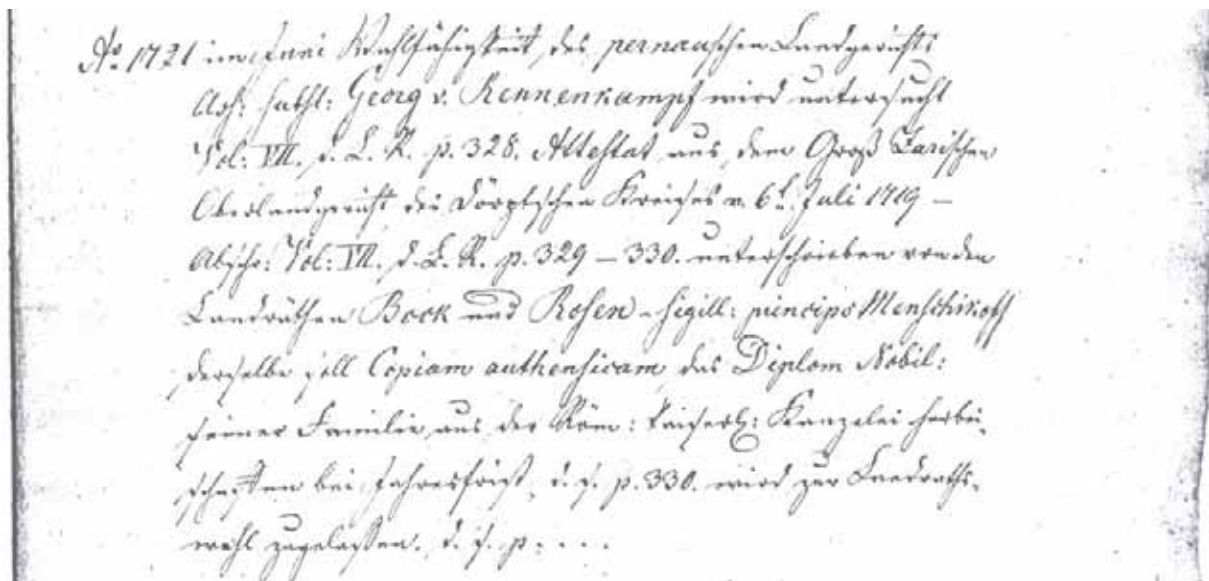 Ao 1721 im Juni Wahlfähigkeit des pernauschen Landgerichts
Georg v. Rennenkampf wird untersucht
Vol: VII. d. L. R. p. 328. Attestat aus dem Groß Zarischen
Oberlandgericht des Dörptschen Kreises v. 6t. Juli 1719 –
Abschr: Vol: VII. d. L. R. p. 329 – 330. unterschrieben von den
Landräthen Bock und Rosen – sigill: princips Menschikoff
derselbe soll Copiam authenticam des Diplom Nobil:
seiner Familie aus der Röm: Kaiserl: Kanzelei herbei-
schaffen bei Jahresfrist, d. s. p. 330. wird zur Landraths-
wahl zugelassen. d. s. p. . . .